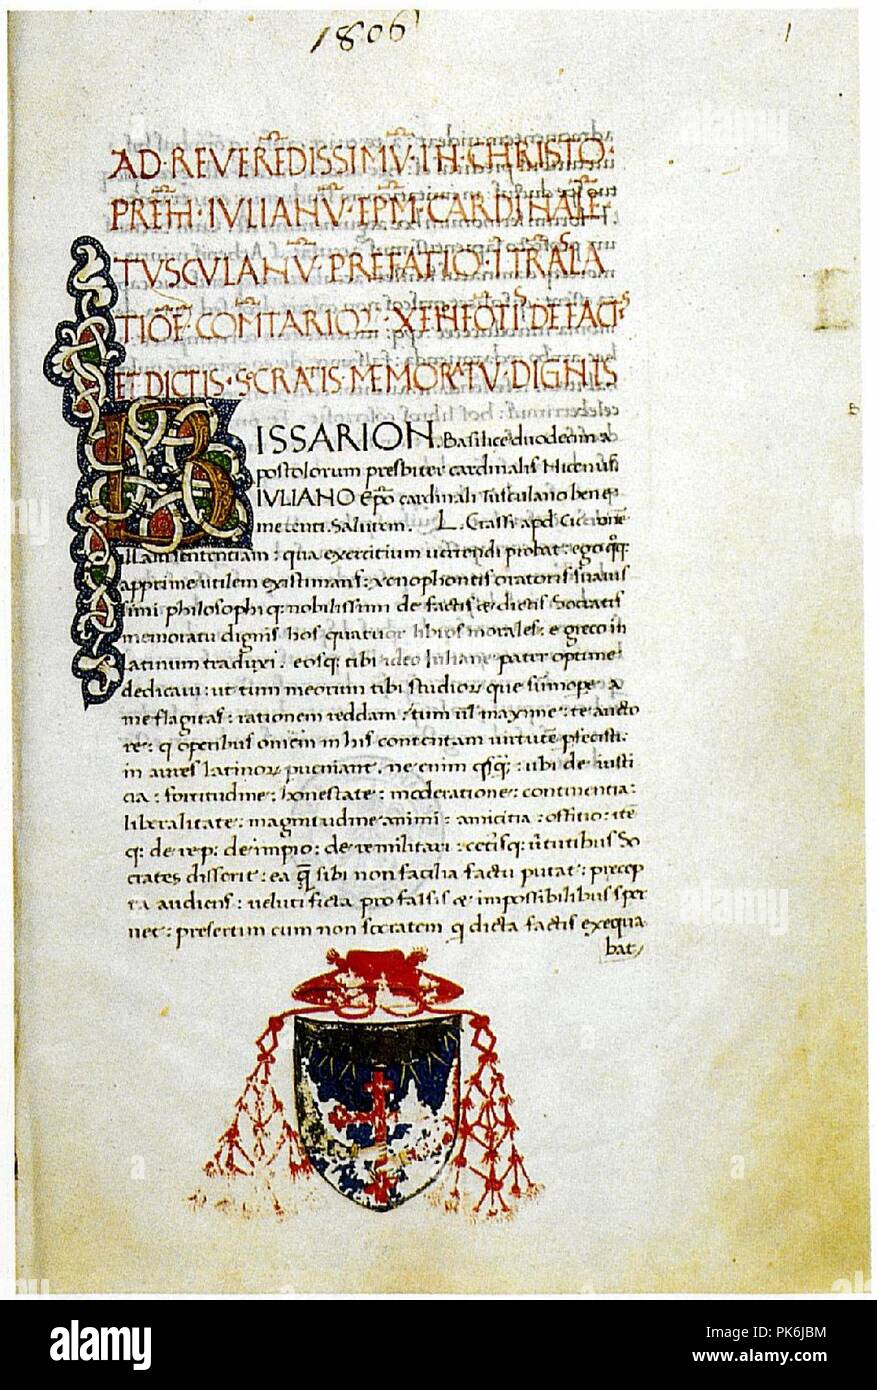 1806
1
AD·REVERĒDISSIMŪ·IN·CHRISTO·
PREM·IVLIANŪ·EPM·CARDINALĒ·
TVSCVLANŪ·PREFATIO·Ī TRĀSLA
TIŌE·COMTARIOꝜ·XENEFŌTIS DE FACTS
ET DICTIS·SCRATIS·MEMORATV·DIGNIS
BISSARION. Basilice duodecim a
postolorum presbiter cardinalis Nicenus
IVLIANO Ep̄o cardinali Tusculano bene
merenti. Salutem. L. Crassi apd Ciceronē
illam sententiam: qua exercitium vertendi probat: ego
apprime utilem existimans: xenophontis oratoris suauis
simi philosophi q; nobilissimi de factis & dictis Socratis
memoratu dignis hos quatuor libros morales: e greco in
latinum traduxi. eosq; tibi ideo Iuliane pater optime
dedicaui: ut tum meorum tibi studioꝝ que sūmope a
me flagitas: rationem reddam: tum ūl maxime te aucto
re: q operibus omēm in his contentam virtutē pfecisti:
in aures latinoꝝ pueniant. ne enim : ubi de iusti
cia: fortitudine: honestate: moderatione: continentia:
liberalitate: magnitudine animi: amicitia: offitio: itē
q; de re p: de impio: de re militari: cetisq; ūtutibus So
crates disserit: ea sibi non facilia factu putat: precep
ta audiens: veluti ficta pro falsis & impossibilibus sper
net: presertim cum non socratem q dicta factis exequa
bat
alamy
Image ID: PK6JBM
www.alamy.com